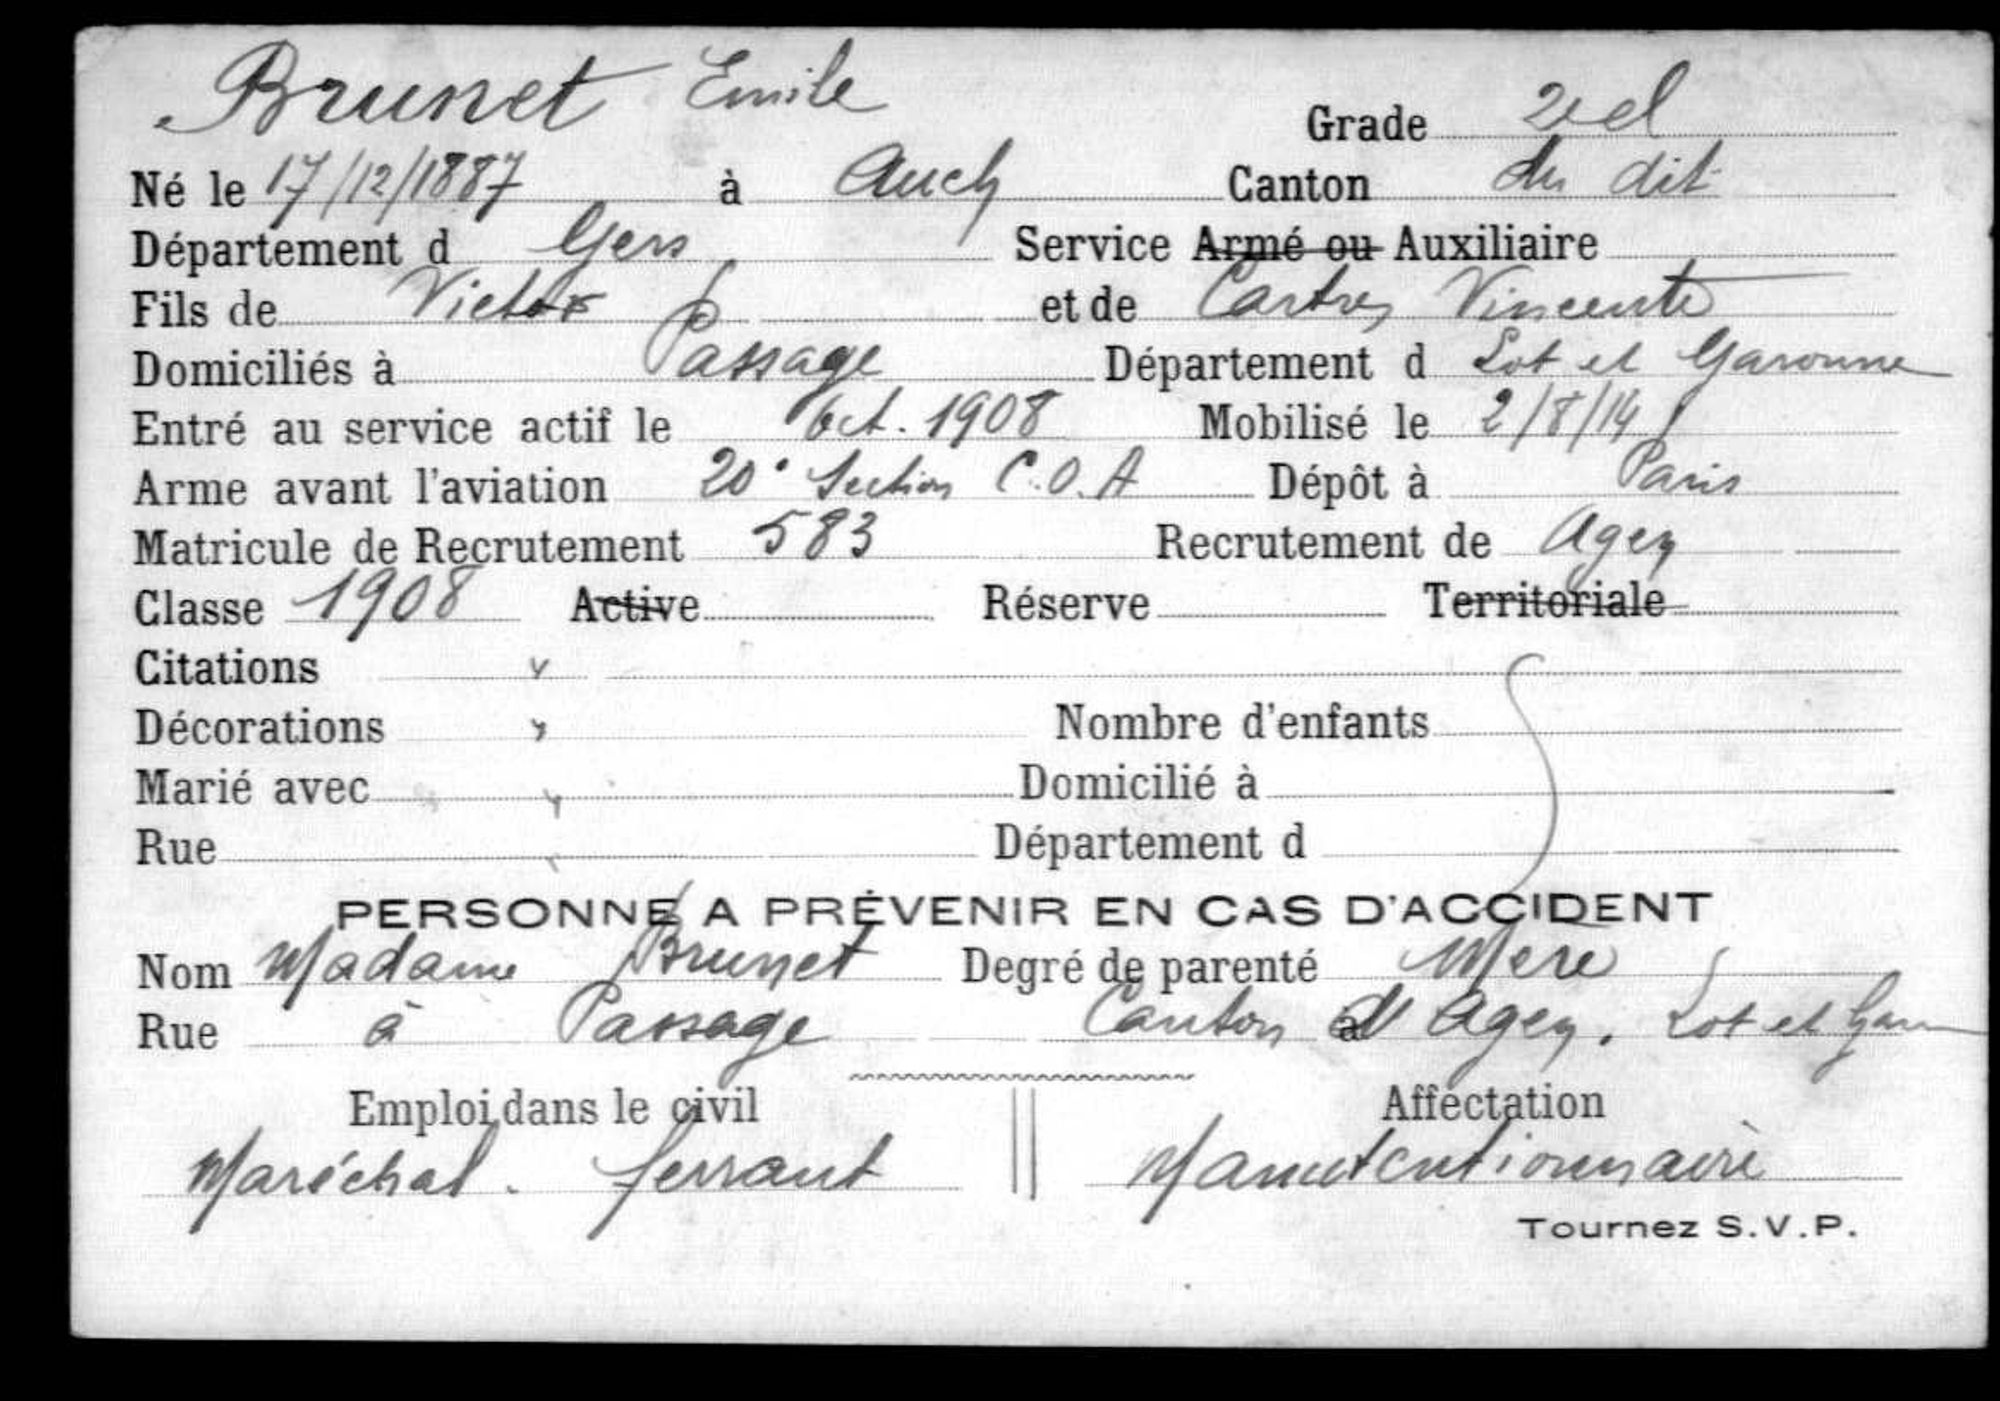 Brunet Emile
Grade 2e cl
Né le 17/12/1887 à Auch Canton du dit
Département d Gers Service Armé ou Auxiliaire
Fils de Victor et de Vincente
Domiciliés à Passage Département d Lot et Garonne
Entré au service actif le Oct. 1908 Mobilisé le 2/8/14
Arme avant l'aviation 20e Section C.O.A Dépôt à Paris
Matricule de Recrutement 583 Recrutement de Agen
Classe 1908 Active Réserve Territoriale
Citations
Décorations Nombre d'enfants
Marié avec Domicilié à
Rue Département d
PERSONNE A PRÉVENIR EN CAS D'ACCIDENT
Nom Madame Brunet Degré de parenté Mère
Rue à Passage Canton d'Agen. Lot et Gar
Emploi dans le civil Affectation
Maréchal. ferrant Manutentionnaire
Tournez S.V.P.